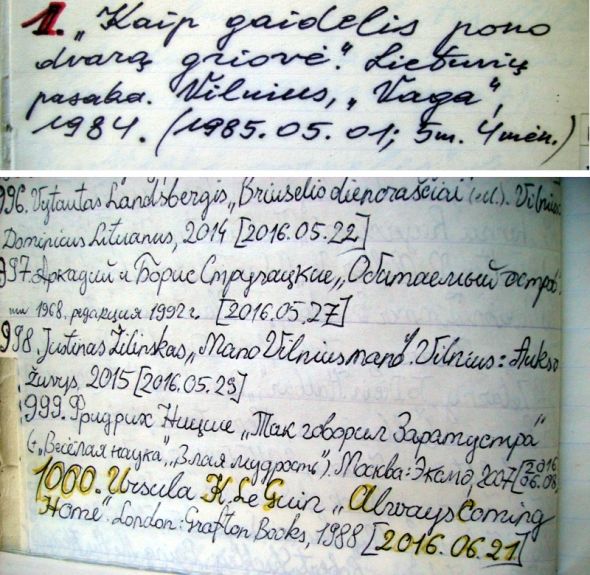 1. „Kaip gaidelis pono
dvarą griovė“. Lietuvių
pasaka. Vilnius, „Vaga“,
1984. (1985.05.01; 5m. 4mėn.)
996. Vytautas Landsbergis, „Briuselio dienoraščiai“ (el.). Vilnius:
Dominicus Lituanus, 2014 [2016.05.22]
997. Аркадий и Борис Стругацкие, „Обитаемый остров“.
1968, редакция 1992 г. [2016.05.27]
998. Justinas Žilinskas, „Mano Vilnius mano“. Vilnius: Aukso
žuvys, 2015 [2016.05.29]
999. Фридрих Ницше „Так говорил Заратустра“
(+„Весёлая наука“, „Злая мудрость“). Москва: Эксмо, 2007 [2016.
06.08]
1000. Ursula K. Le Guin „Always Coming
Home“. London: Grafton Books, 1988 [2016.06.21]